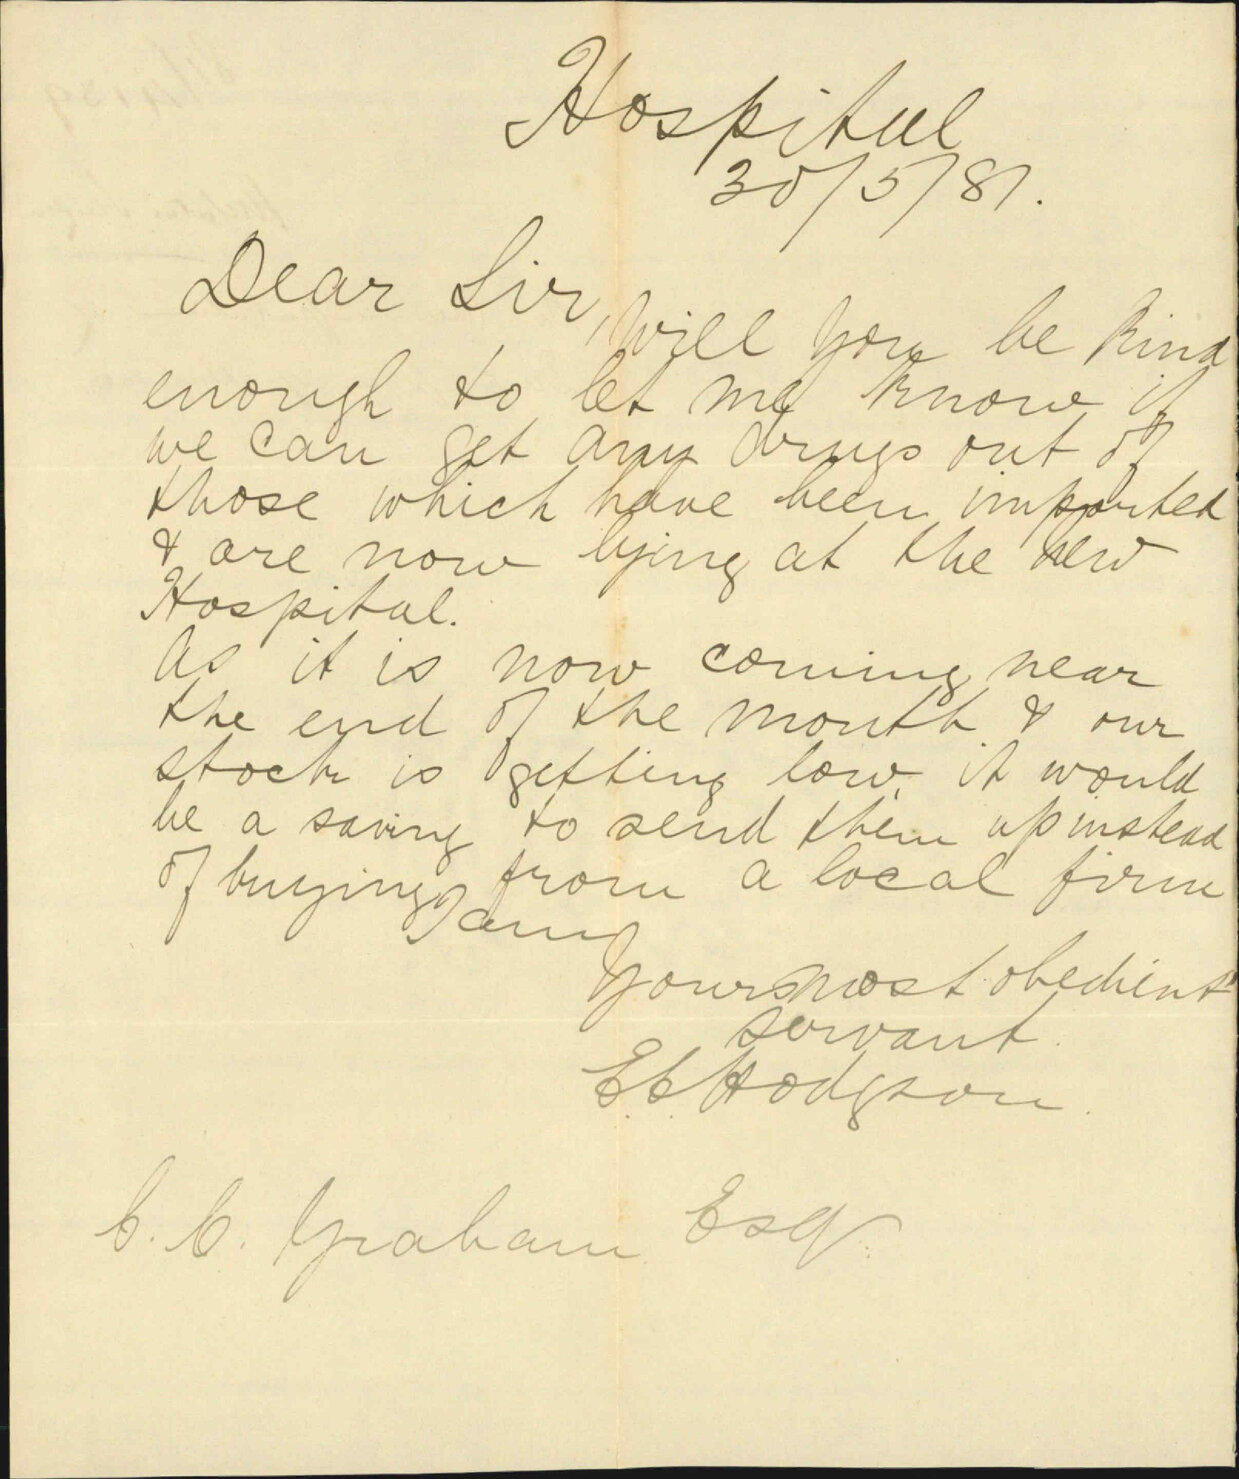 Hospital
30/5/81.
Dear Sir,
Will you be kind
enough to let me know if
we can get any drugs out of
those which have been imported
& are now lying at the new
Hospital.
As it is now coming near
the end of the month & our
stock is getting low, it would
be a saving to send them up instead
of buying from a local firm
I am
Yours most obedient
servant.
E. C. Hodgson
C. C. Graham Esq.